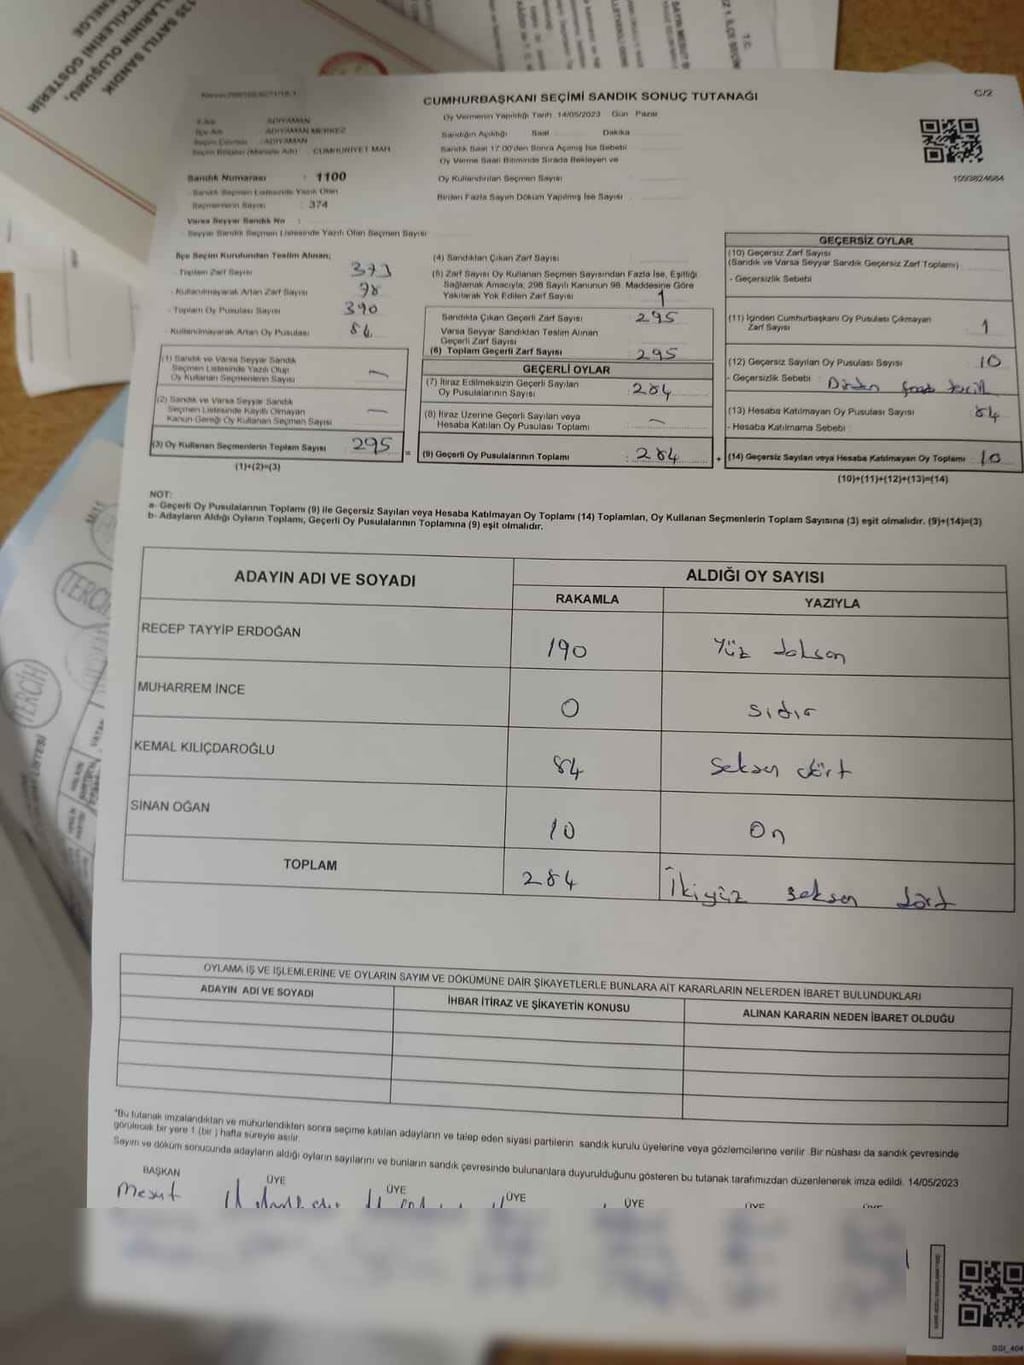 135 SAYILI SANDIK
OLUŞUMU,
GÖSTERİR
T.C.
CUMHURBAŞKANI SEÇİMİ SANDIK SONUÇ TUTANAĞI
C/2
Oy Vermenin Yapıldığı Tarih 14/05/2023 Gün Pazar
ADIYAMAN
ADIYAMAN MERKEZ
ADIYAMAN
CUMHURİYET MAH.
Sandığın Açıldığı Saat Dakika
Sandık Saat 17:00'den Sonra Açılmış İse Sebebi
Oy Verme Saati Bitiminde Sırada Bekleyen ve
Oy Kullandırılan Seçmen Sayısı
Birden Fazla Sayım Döküm Yapılmış İse Sayısı
1093824684
Sandık Numarası : 1100
Sandık Seçmen Listesinde Yazılı Olan
Seçmenlerin Sayısı : 374
Varsa Seyyar Sandık No :
Seyyar Sandık Seçmen Listesinde Yazılı Olan Seçmen Sayısı
İlçe Seçim Kurulundan Teslim Alınan;
- Toplam Zarf Sayısı 373
- Kullanılmayarak Artan Zarf Sayısı 78
- Toplam Oy Pusulası Sayısı 390
- Kullanılmayarak Artan Oy Pusulası 84
(1) Sandık ve Varsa Seyyar Sandık
Seçmen Listesinde Yazılı Olup
Oy Kullanan Seçmenlerin Sayısı —
(2) Sandık ve Varsa Seyyar Sandık
Seçmen Listesinde Kayıtlı Olmayan
Kanun Gereği Oy Kullanan Seçmen Sayısı —
(3) Oy Kullanan Seçmenlerin Toplam Sayısı 295
(1)+(2)=(3)
(4) Sandıktan Çıkan Zarf Sayısı
(5) Zarf Sayısı Oy Kullanan Seçmen Sayısından Fazla İse, Eşitliği
Sağlamak Amacıyla, 298 Sayılı Kanunun 98. Maddesine Göre
Yakılarak Yok Edilen Zarf Sayısı 1
Sandıkta Çıkan Geçerli Zarf Sayısı : 295
Varsa Seyyar Sandıktan Teslim Alınan
Geçerli Zarf Sayısı
(6) Toplam Geçerli Zarf Sayısı 295
GEÇERLİ OYLAR
(7) İtiraz Edilmeksizin Geçerli Sayılan
Oy Pusulalarının Sayısı : 284
(8) İtiraz Üzerine Geçerli Sayılan veya
Hesaba Katılan Oy Pusulası Toplamı : —
(9) Geçerli Oy Pusulalarının Toplamı : 284
GEÇERSİZ OYLAR
(10) Geçersiz Zarf Sayısı
(Sandık ve Varsa Seyyar Sandık Geçersiz Zarf Toplamı)
- Geçersizlik Sebebi
(11) İçinden Cumhurbaşkanı Oy Pusulası Çıkmayan
Zarf Sayısı 1
(12) Geçersiz Sayılan Oy Pusulası Sayısı 10
- Geçersizlik Sebebi : Birden
(13) Hesaba Katılmayan Oy Pusulası Sayısı 84
- Hesaba Katılmama Sebebi
(14) Geçersiz Sayılan veya Hesaba Katılmayan Oy Toplamı 10
(10)+(11)+(12)+(13)=(14)
NOT:
a- Geçerli Oy Pusulalarının Toplamı (9) ile Geçersiz Sayılan veya Hesaba Katılmayan Oy Toplamı (14) Toplamları, Oy Kullanan Seçmenlerin Toplam Sayısına (3) eşit olmalıdır. (9)+(14)=(3)
b- Adayların Aldığı Oyların Toplamı, Geçerli Oy Pusulalarının Toplamına (9) eşit olmalıdır.
ADAYIN ADI VE SOYADI ALDIĞI OY SAYISI
RAKAMLA YAZIYLA
RECEP TAYYİP ERDOĞAN 190 Yüz doksan
MUHARREM İNCE 0 sıfır
KEMAL KILIÇDAROĞLU 84 Seksen dört
SİNAN OĞAN 10 On
TOPLAM 284 İkiyüz seksen dört
OYLAMA İŞ VE İŞLEMLERİNE VE OYLARIN SAYIM VE DÖKÜMÜNE DAİR ŞİKAYETLERLE BUNLARA AİT KARARLARIN NELERDEN İBARET BULUNDUKLARI
ADAYIN ADI VE SOYADI İHBAR İTİRAZ VE ŞİKAYETİN KONUSU ALINAN KARARIN NEDEN İBARET OLDUĞU
*Bu tutanak imzalandıktan ve mühürlendikten sonra seçime katılan adayların ve talep eden siyasi partilerin sandık kurulu üyelerine veya gözlemcilerine verilir. Bir nüshası da sandık çevresinde
görülecek bir yere 1 (bir) hafta süreyle asılır.
Sayım ve döküm sonucunda adayların aldığı oyların sayılarını ve bunların sandık çevresinde bulunanlara duyurulduğunu gösteren bu tutanak tarafımızdan düzenlenerek imza edildi. 14/05/2023
BAŞKAN ÜYE ÜYE ÜYE ÜYE ÜYE
Mesut
TERCİH
TERCİH